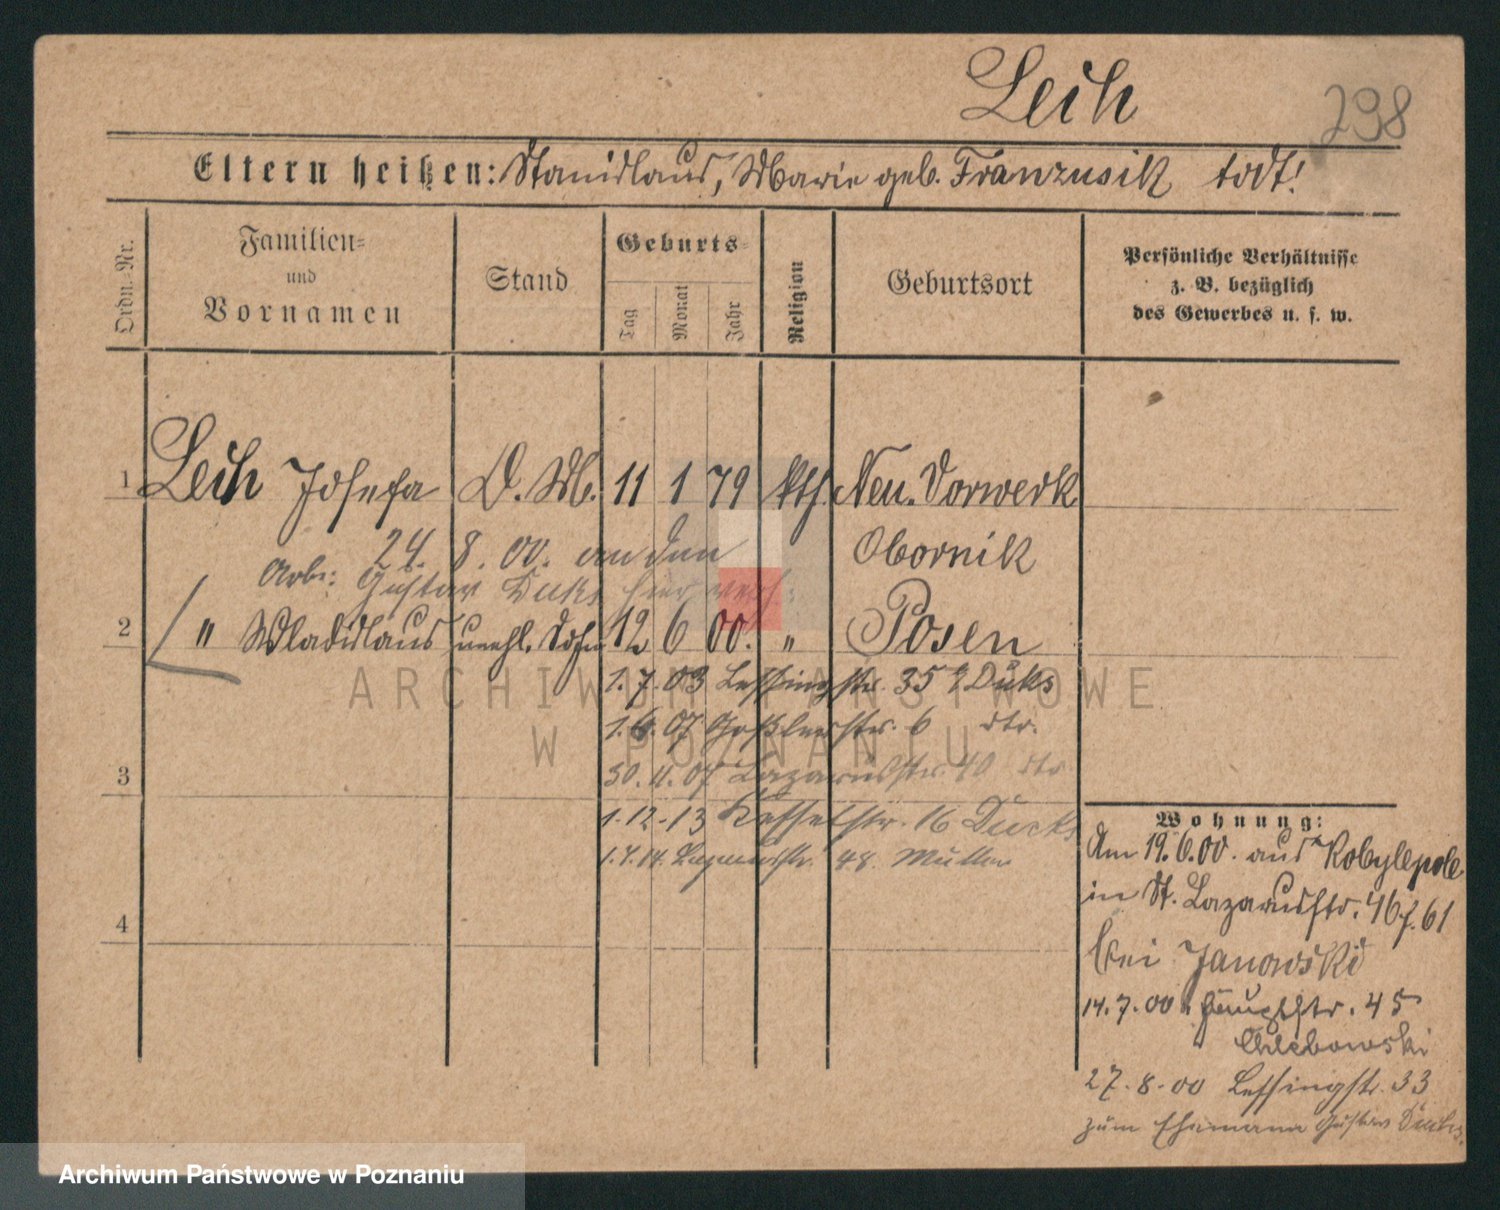 Leih
298
Eltern heißen: Stanislaus, Marie geb. Franzusik todt!
Ordn.-Nr.
Familien-
und
Vornamen
Stand
Geburts-
Tag
Monat
Jahr
Religion
Geburtsort
Persönliche Verhältnisse
z. B. bezüglich
des Gewerbes u. s. w.
1 Leih Josefa D. M. 11 1 79 kth. Neu. Vorwerk
Obornik
24. 8. 00. an den
Arb: Gustav Duks hier verh:
2 " Wladislaus unehl. Sohn 12 6 00. " Posen
1. 7. 03 Lessingstr. 35 Duks
1. 6. 07 Goßlerstr. 6 dto.
3 30. 11. 07 Lazarusstr. 40 dto
1. 12. 13 Kesselstr. 16 Ducks
1. 4. 14. Lazarusstr. 48. Müller
4
Wohnung:
Am 19. 6. 00. aus Kobylepole
in St. Lazarusstr. 46 f. 61
bei Janowski
14. 7. 00 Hauptstr. 45
Chlebowski
27. 8. 00 Lessingstr. 33
zum Ehemann Gustav Duks.
ARCHIWUM PAŃSTWOWE
W POZNANIU
Archiwum Państwowe w Poznaniu